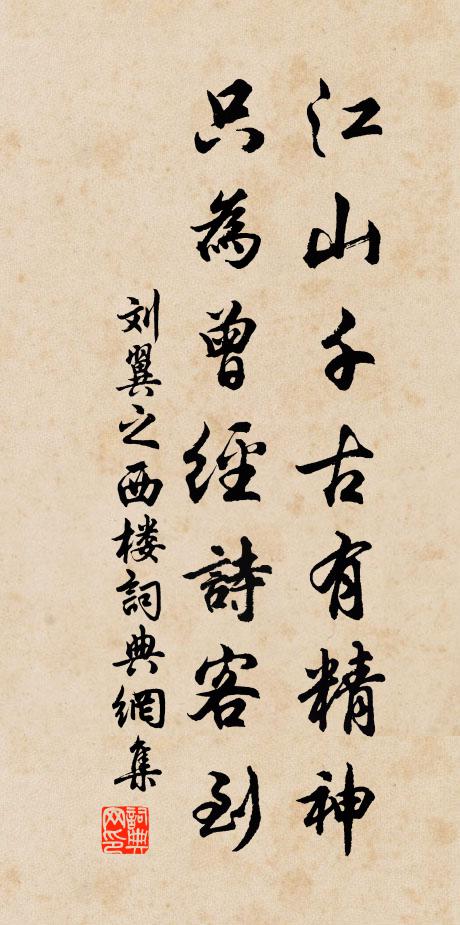 江山千古有精神
只為曾經詩客到
刘翼之西楼詞典網集
詞典网印